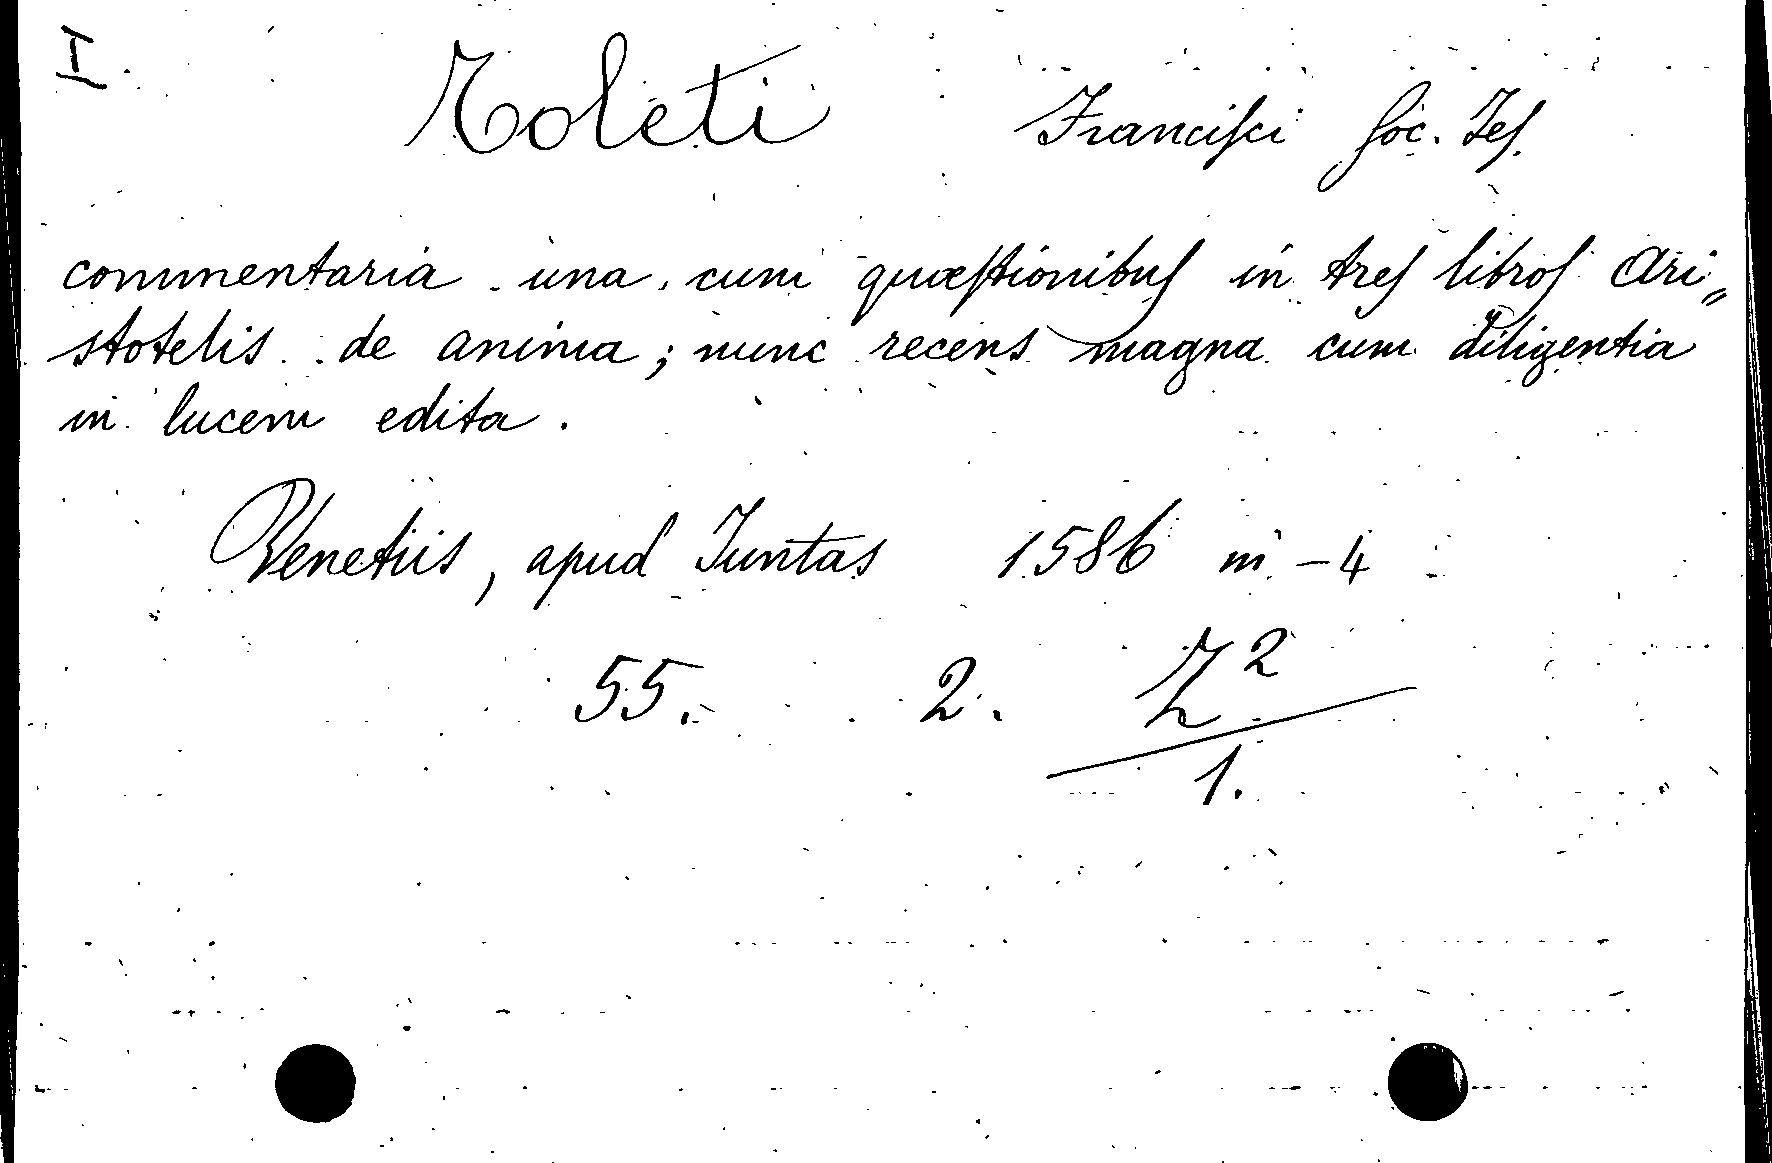 I.
Toleti Franciſci Soc. Jeſ.
commentaria una cum quæſtionibuſ in treſ libroſ Ari„
stotelis de anima; nunc recens magna cum diligentia
in lucem edita.
Venetiis, apud Juntas 1586 in-4
55. 2. Z²
1.